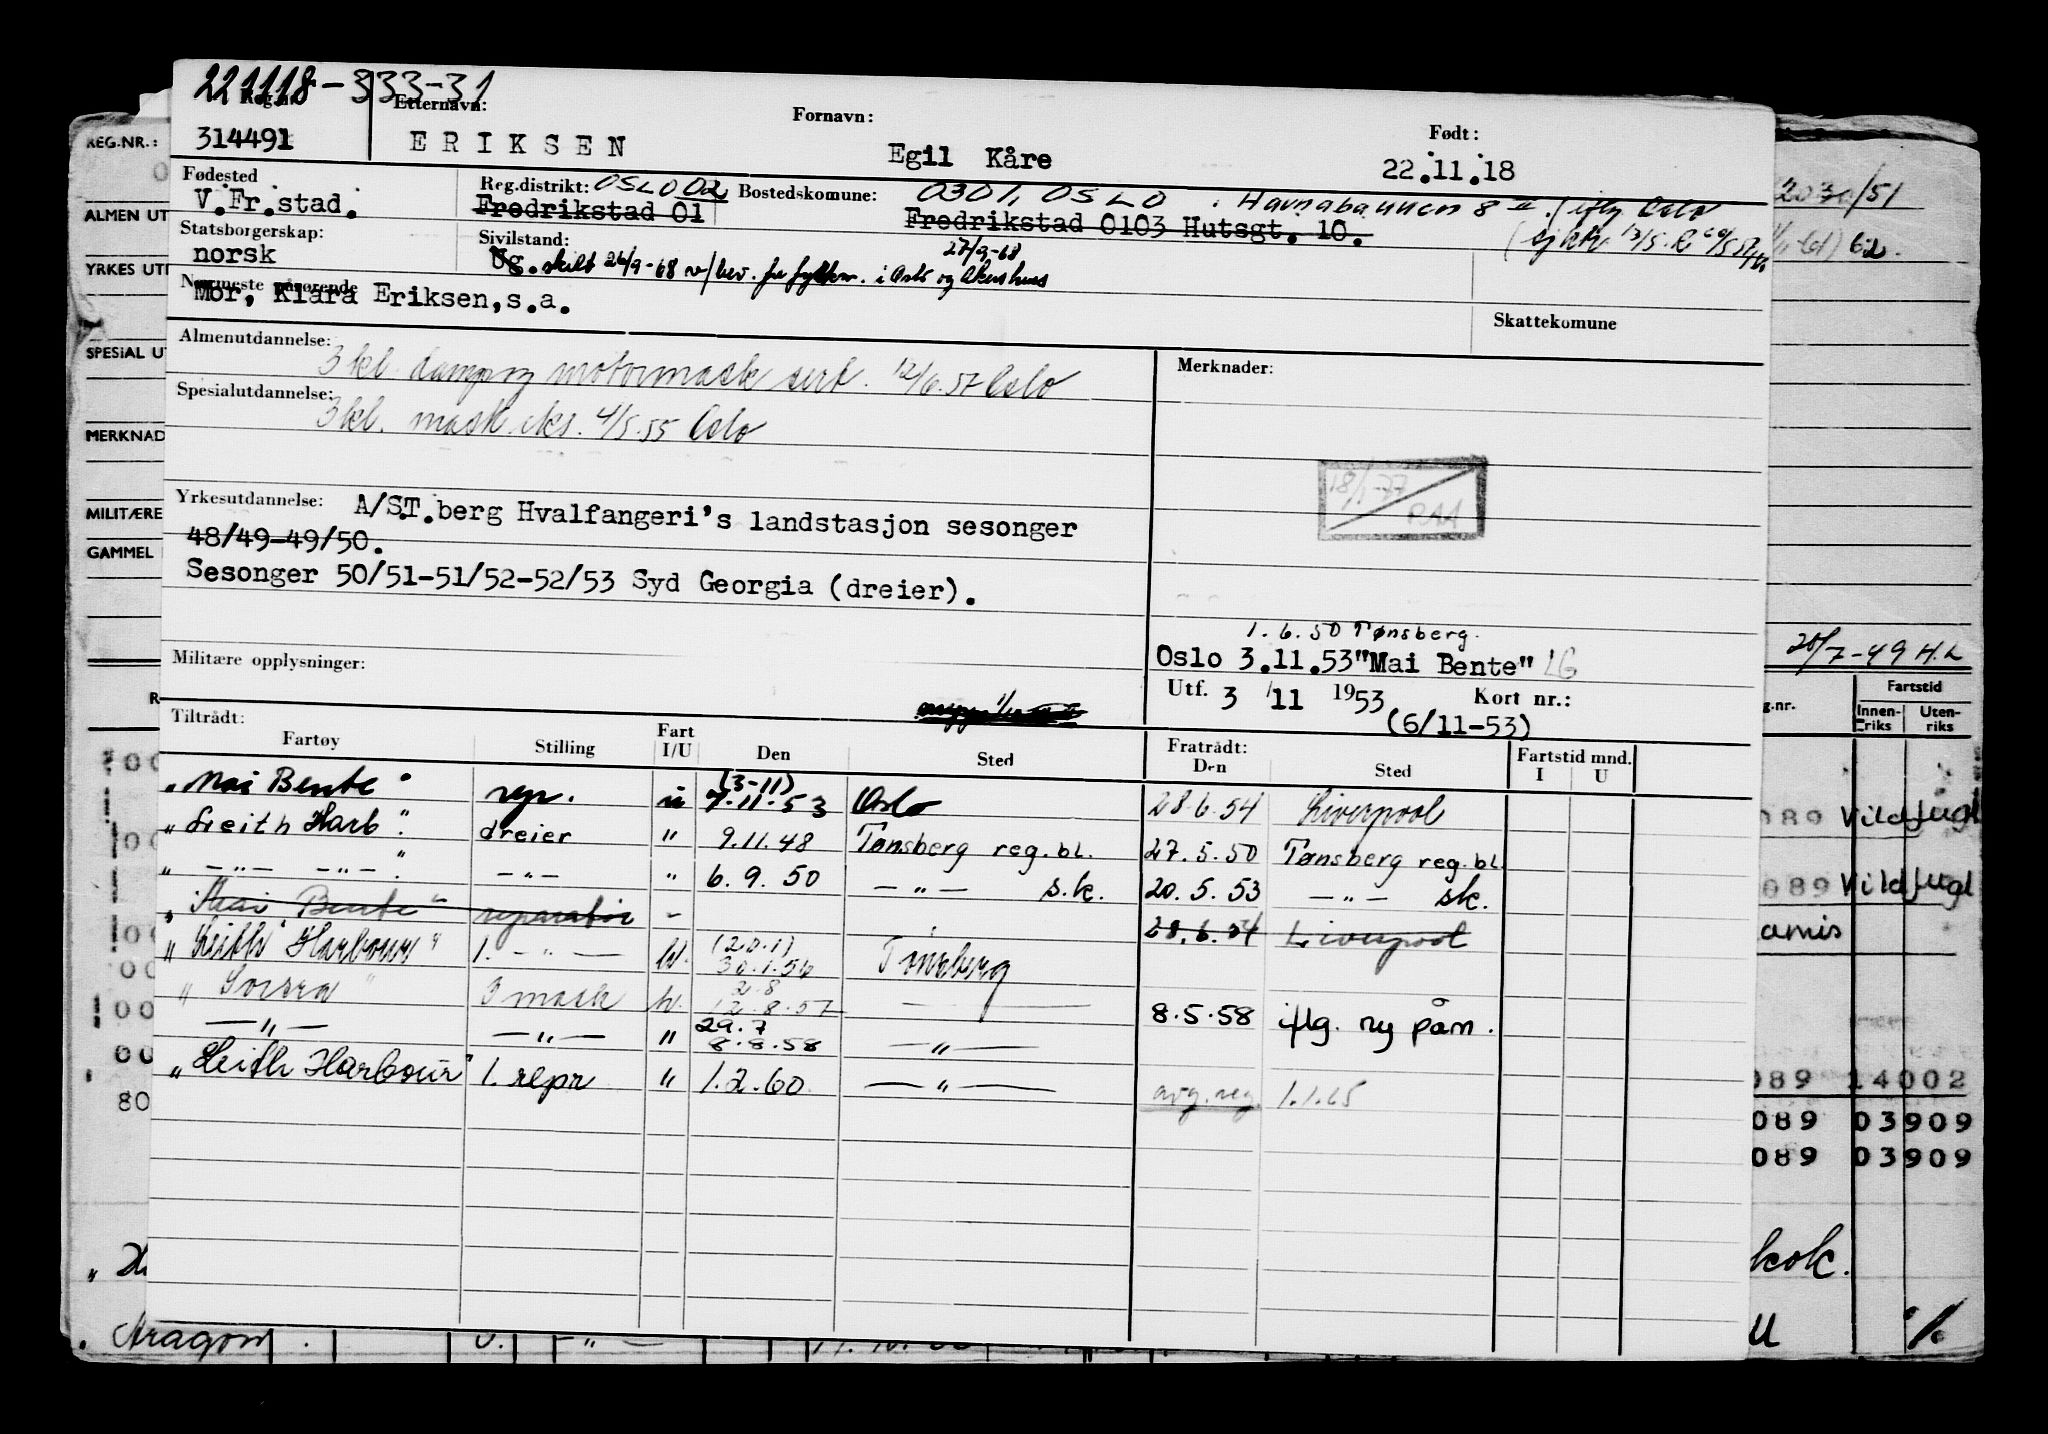 221118-333-31
Reg.nr. Etternavn: Fornavn: Født:
REG.NR.: 314491 ERIKSEN Egil Kåre 22.11.18
Fødested Reg.distrikt: OSLO 02 Bostedskomune: 0301, OSLO. Havnabakken 8 II. iflg Oslo 2030/51
ALMEN UT V.Fr.stad. Fredrikstad 01 Fredrikstad 0103 Hutsgt. 10.
Statsborgerskap: Sivilstand: 27/9-68
YRKES UT norsk Ug. skilt 26/9-68 v/bev. fra fylkm. i Oslo og Akershus
Nærmeste pårørende
Mor, Klara Eriksen,s.a.
Skattekomune
SPESIAL UT Almenutdannelse: 3 kl. damp og motormask sert. 12/6.57 Oslo Merknader:
Spesialutdannelse: 3 kl. mask. eks. 4/5.55 Oslo
MERKNAD
18/1-77
RAA
MILITÆRE Yrkesutdannelse: A/S T.berg Hvalfangeri's landstasjon sesonger
GAMMEL 48/49-49/50.
Sesonger 50/51-51/52-52/53 Syd Georgia (dreier).
1.6.50 Tønsberg.
Militære opplysninger: Oslo 3.11.53"Mai Bente" LG
20/7-49 H.L
Utf. 3/11 1953 Kort nr.:
(6/11-53)
Tiltrådt: Fratrådt: Fartstid mnd.
Fartøy Stilling Fart I/U Den Sted Den Sted I U
g.nr. Fartstid Innen-riks Uten-riks
"Mai Bente" rep. u (3-11) 7.11.53 Oslo 28.6.54 Liverpool
"Leith Harb". dreier " 9.11.48 Tønsberg reg.bl. 27.5.50 Tønsberg reg.bl.
089 Vildfugl
" -"- -"-." -"- " 6.9.50 -"- s.k. 20.5.53 -"- sk.
089 Vildfugl
"Mai Bente" reparatør - 28.6.54 Liverpool
amis
"Leith Harbour" 1. -"- u. (20.1) 30.1.56 Tønsberg
"Sorsra" 3 mask u. 2.8 12.8.57 — 8.5.58 iflg. ny påm.
-"- -"- " 29.7 8.8.58 -"-
"Leith Harbour" 1. repr " 1.2.60 -"- avg. reg. 1.1.65
089 14002
80
089 03909
089 03909
kok.
Aragon . U. -"-